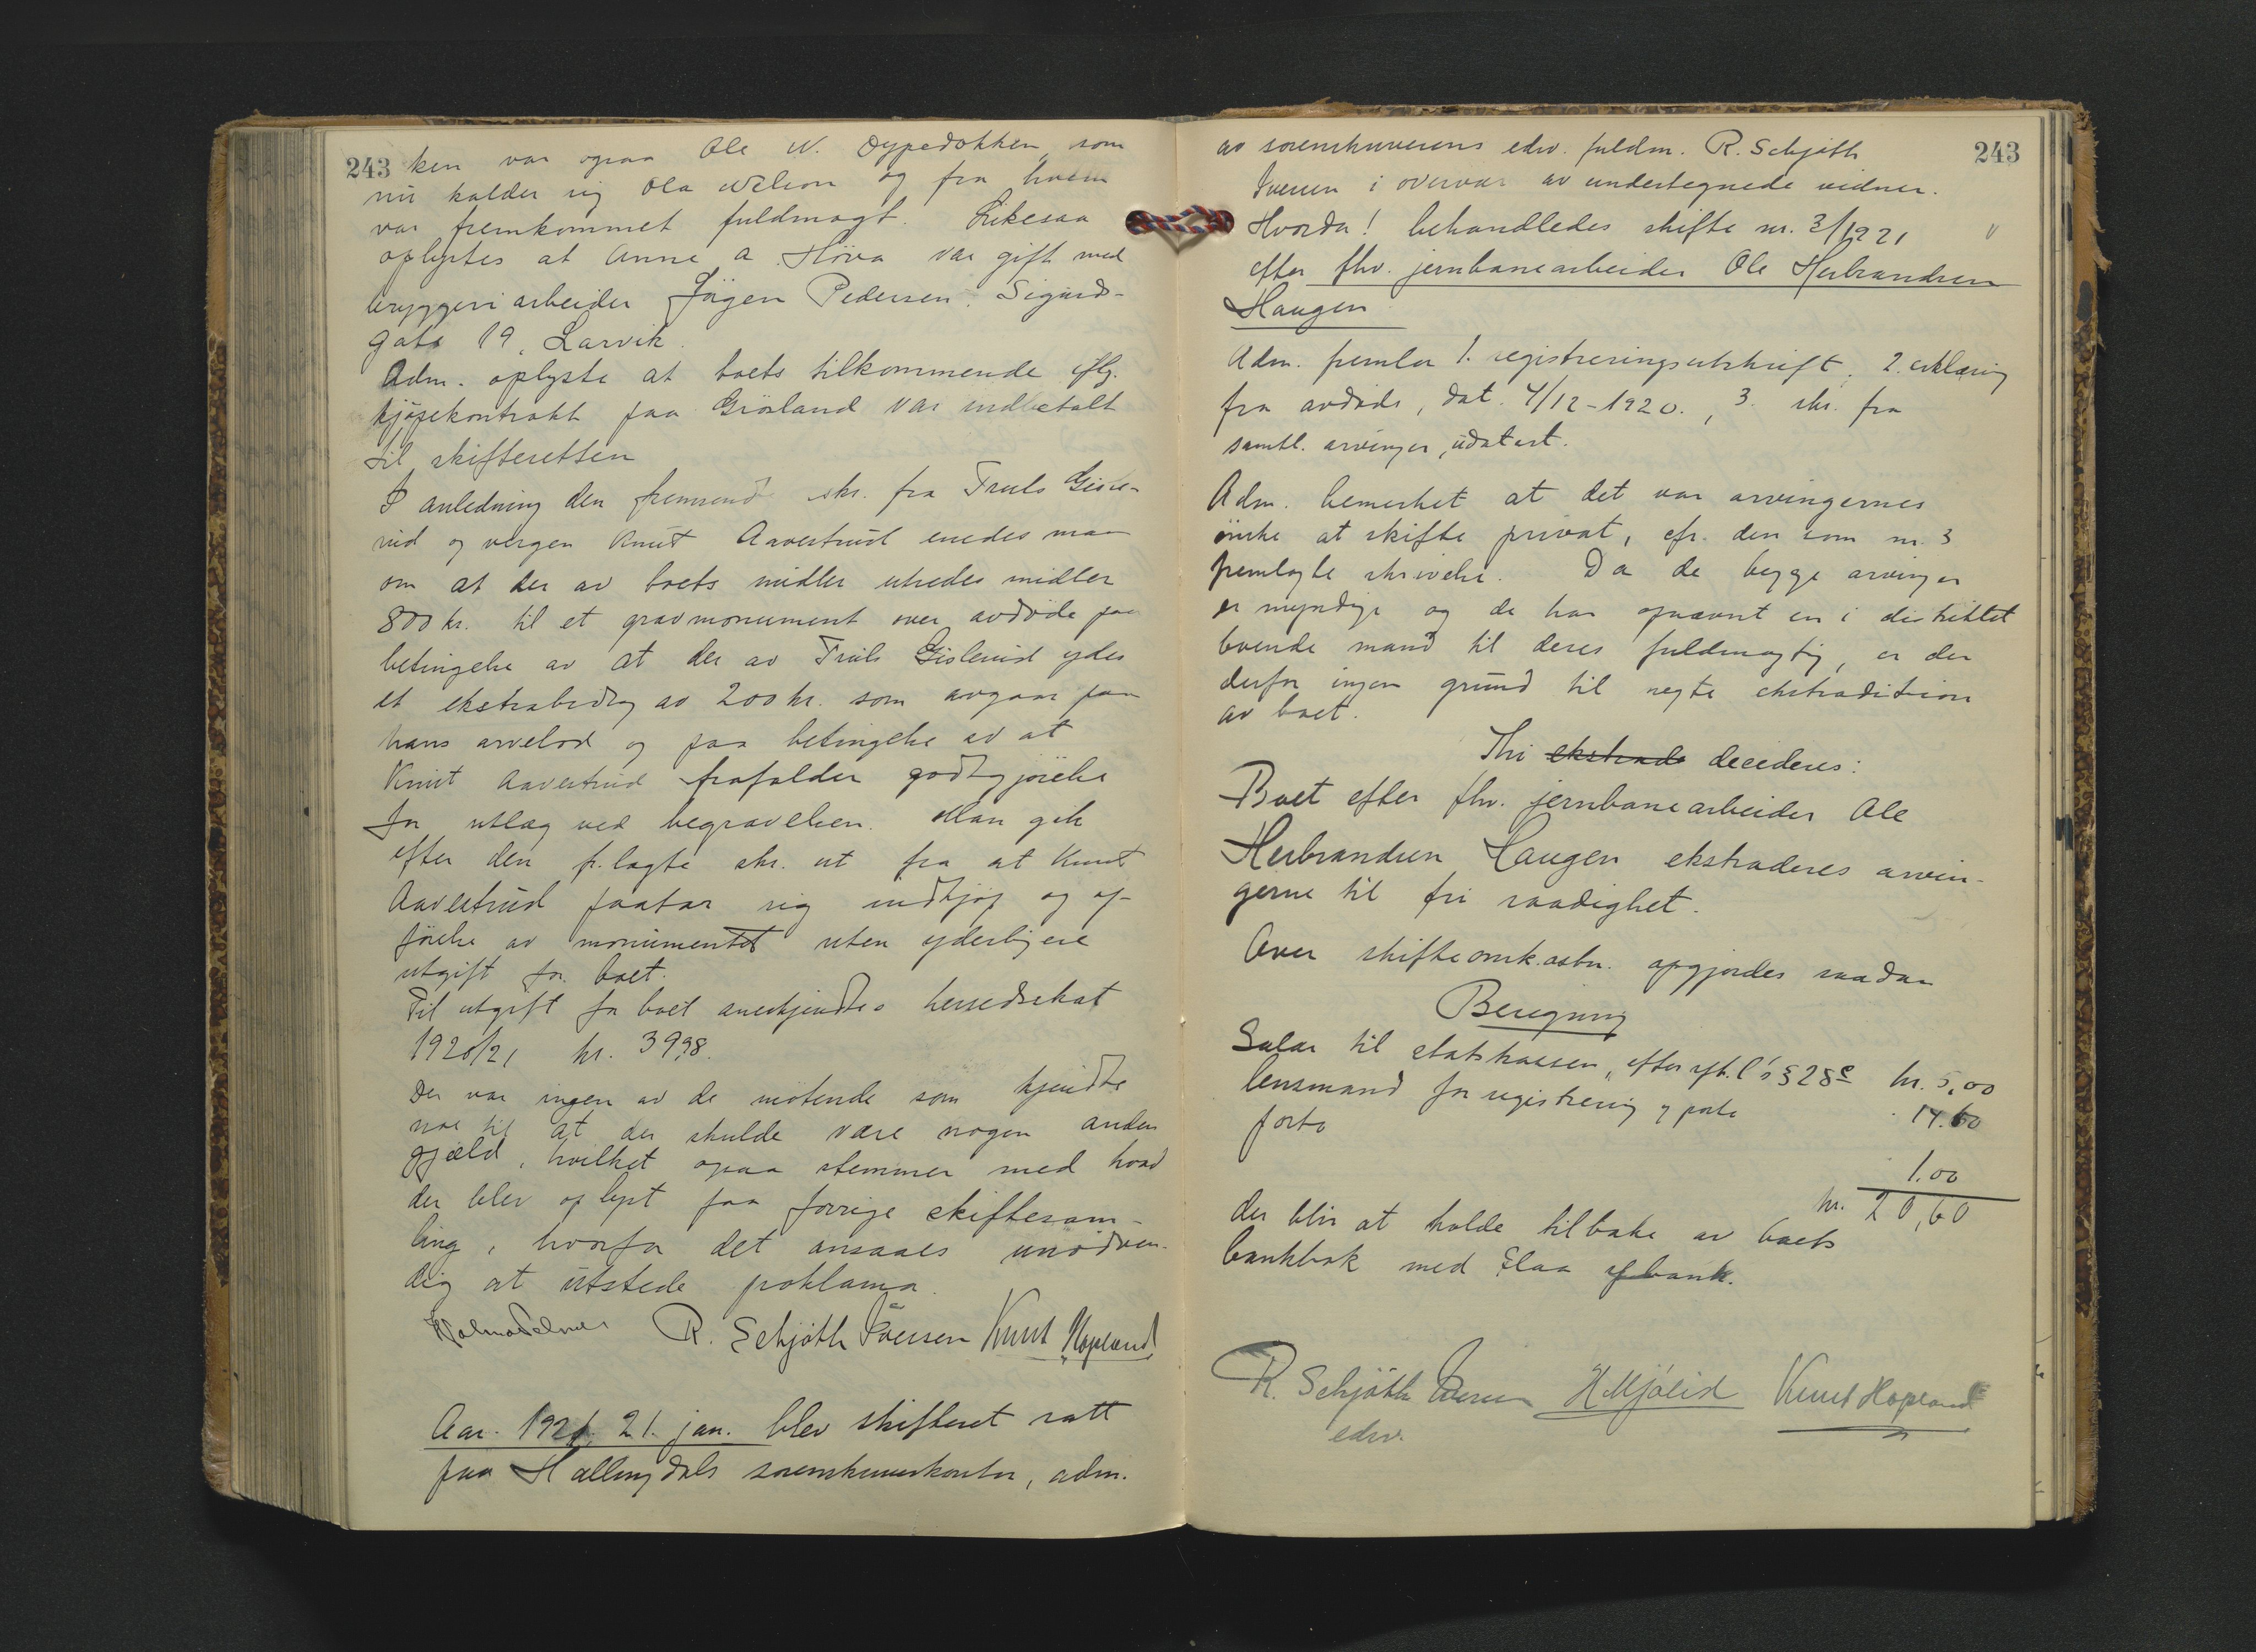 243 ken var ogsaa Ole N. Dypedokken, som
nu kalder sig Ola Nelson og fra hvem
var fremkommet fuldmagt. Likesaa
oplystes at Anne A. Höva var gift med
bryggeriarbeider Jögen Pedersen, Sigurds-
gata 19, Larvik.
Adm. oplyste at boets tilkommende iflg.
kjöpekontrakt paa Grönland var indbetalt
til skifteretten
I anledning den fremsendte skr. fra Truls Gisle-
rud og vergen Knut Aavestrud enedes man
om at der av boets midler utredes midler
800 kr. til et gravmonument over avdöde paa
betingelse av at der av Truls Gislerud ydes
et ekstrabidrag av 200 kr. som avgaar paa
hans arvelod og paa betingelse av at
Knut Aavestrud frafalder godtgjörelse
for utlæg ved begravelsen. Man gik
efter den fr.lagte skr. ut fra at Knut
Aavestrud paatar sig indkjöp og op-
förelse av monumentet uten yderligere
utgift for boet.
Til utgift for boet anerkjendtes herredsskat
1920/21 kr. 39,98.
Der var ingen av de mötende som kjendte
noe til at der skulde være nogen anden
gjæld, hvilket ogsaa stemmer med hvad
der blev oplyst paa forrige skiftesam-
ling, hvorfor det ansaaes unödven-
dig at utstede proklama.
R. Schjöth Iversen Knut Hopland
Aar 1921, 21. jan. blev skifteret satt
paa Hallingdals sorenskriverkontor, adm.
av sorenskriverens edsv. fuldm. R. Schjöth 243
Iversen i overvær av undertegnede vidner.
Hvorda! behandledes skifte nr. 3/1921 "
efter fhv. jernbanearbeider Ole Herbrandsen
Haugen
Adm. fremla 1. registreringsutskrift, 2. erklæring
fra avdöde, dat. 4/12-1920., 3. skr. fra
samtl. arvinger, udatert.
Adm. bemerket at det var arvingernes
önske at skifte privat, cfr. den som nr. 3
fremlagte skrivelse. Da de begge arvinger
er myndige og de har opnævnt en i distriktet
boende mand til deres fuldmægtig, er der
derfor ingen grund til negte ekstradition
av boet.
Thi ekstrade decideres:
Boet efter fhv. jernbanearbeider Ole
Herbrandsen Haugen ekstraderes arvin-
gerne til fri raadighet.
Over skifteomkostn. opgjordes saadan
Beregning
Salær til statskassen, efter spt.l's § 28e kr. 5,00
lensmand for registrering og porto 14.60
porto 1.00
kr. 20,60
der blir at holde tilbake av boets
bankbok med Flaa spbank.
R. Schjöth Iversen H. Mjölid Knut Hopland
edsv.